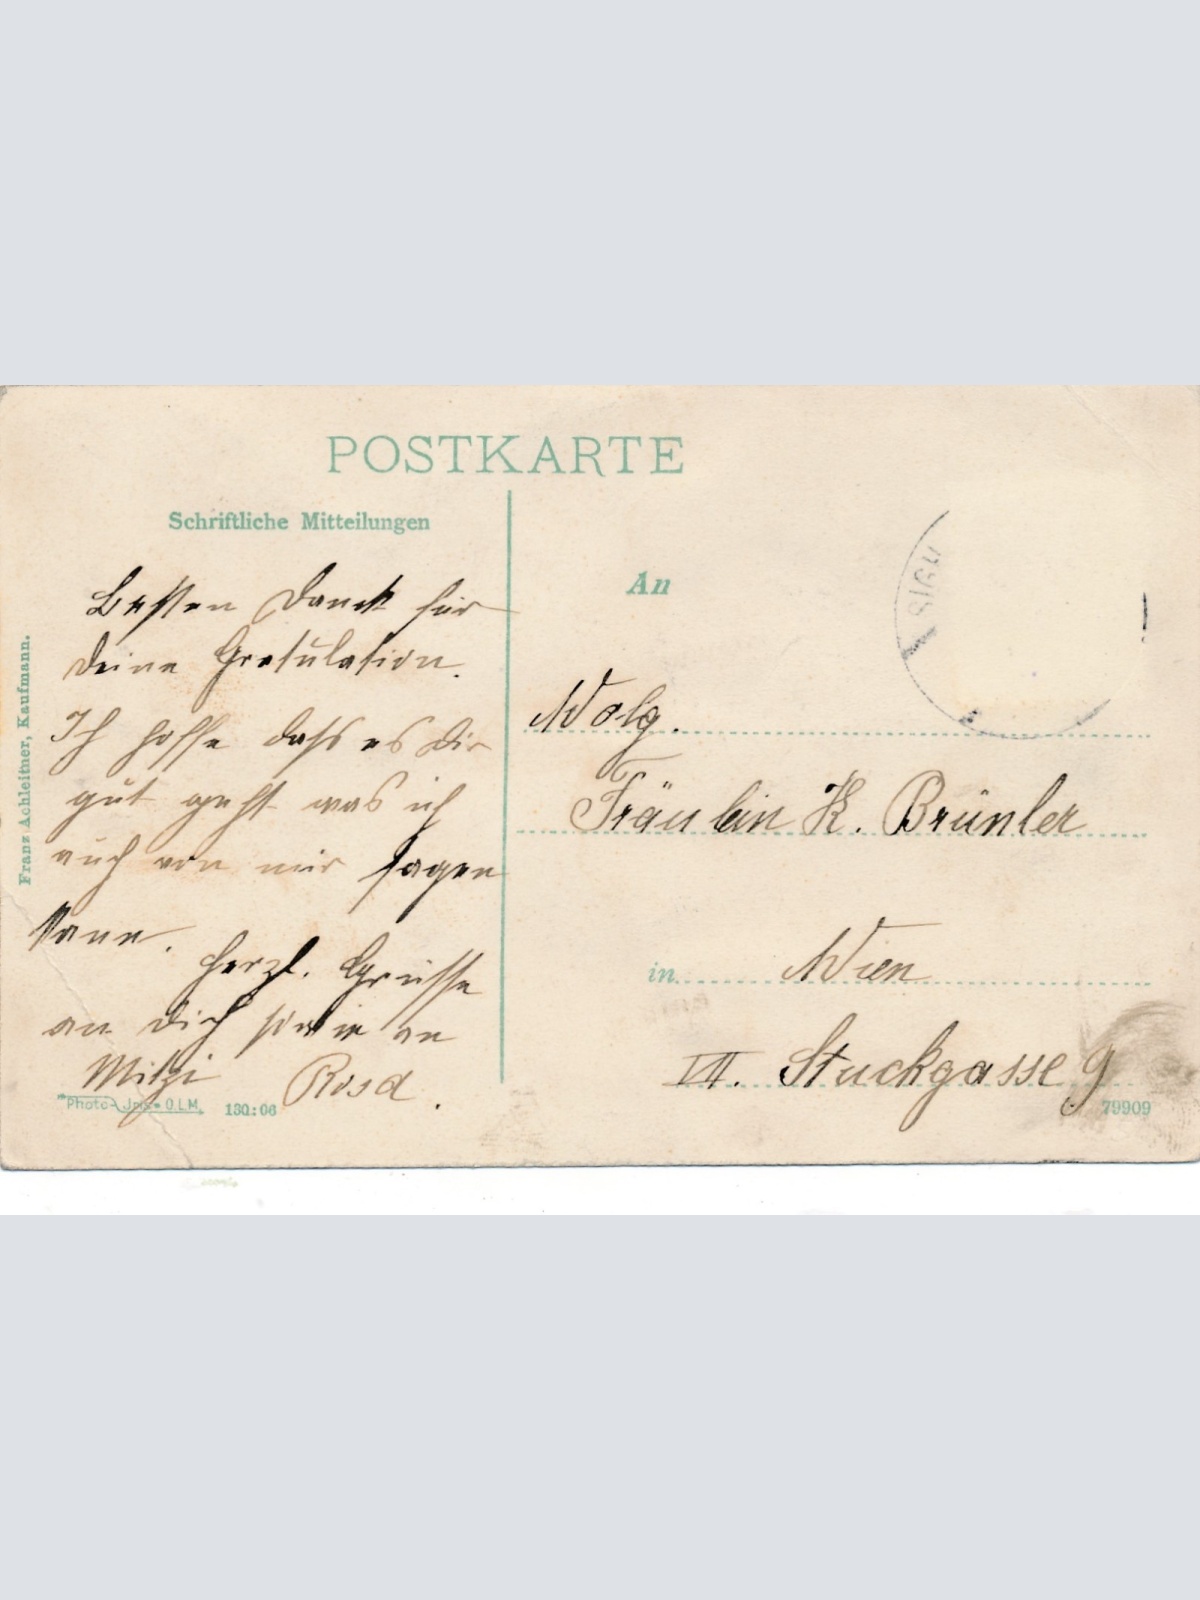 POSTKARTE
Schriftliche Mitteilungen
Besten Danck für
Deine Gratulation.
Ich hoffe dass es Dir
gut geht was ich
auch von mir sagen
kann.
Herzl. Grüsse
an Dich sowie an
Mitzi Rosa.
An
Wolg.
Fräulein K. Brünler
in Wien
VII. Stuckgasse 9
Franz Achleitner, Kaufmann.
130:06
79909